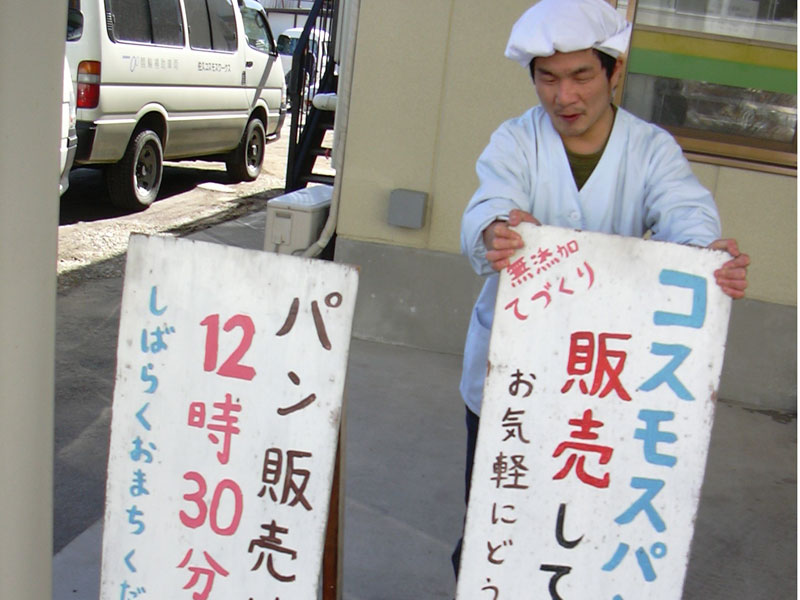 パン販売は
12時30分
しばらくおまちくだ
無添加
てづくり
コスモスパン
販売して
お気軽にどう